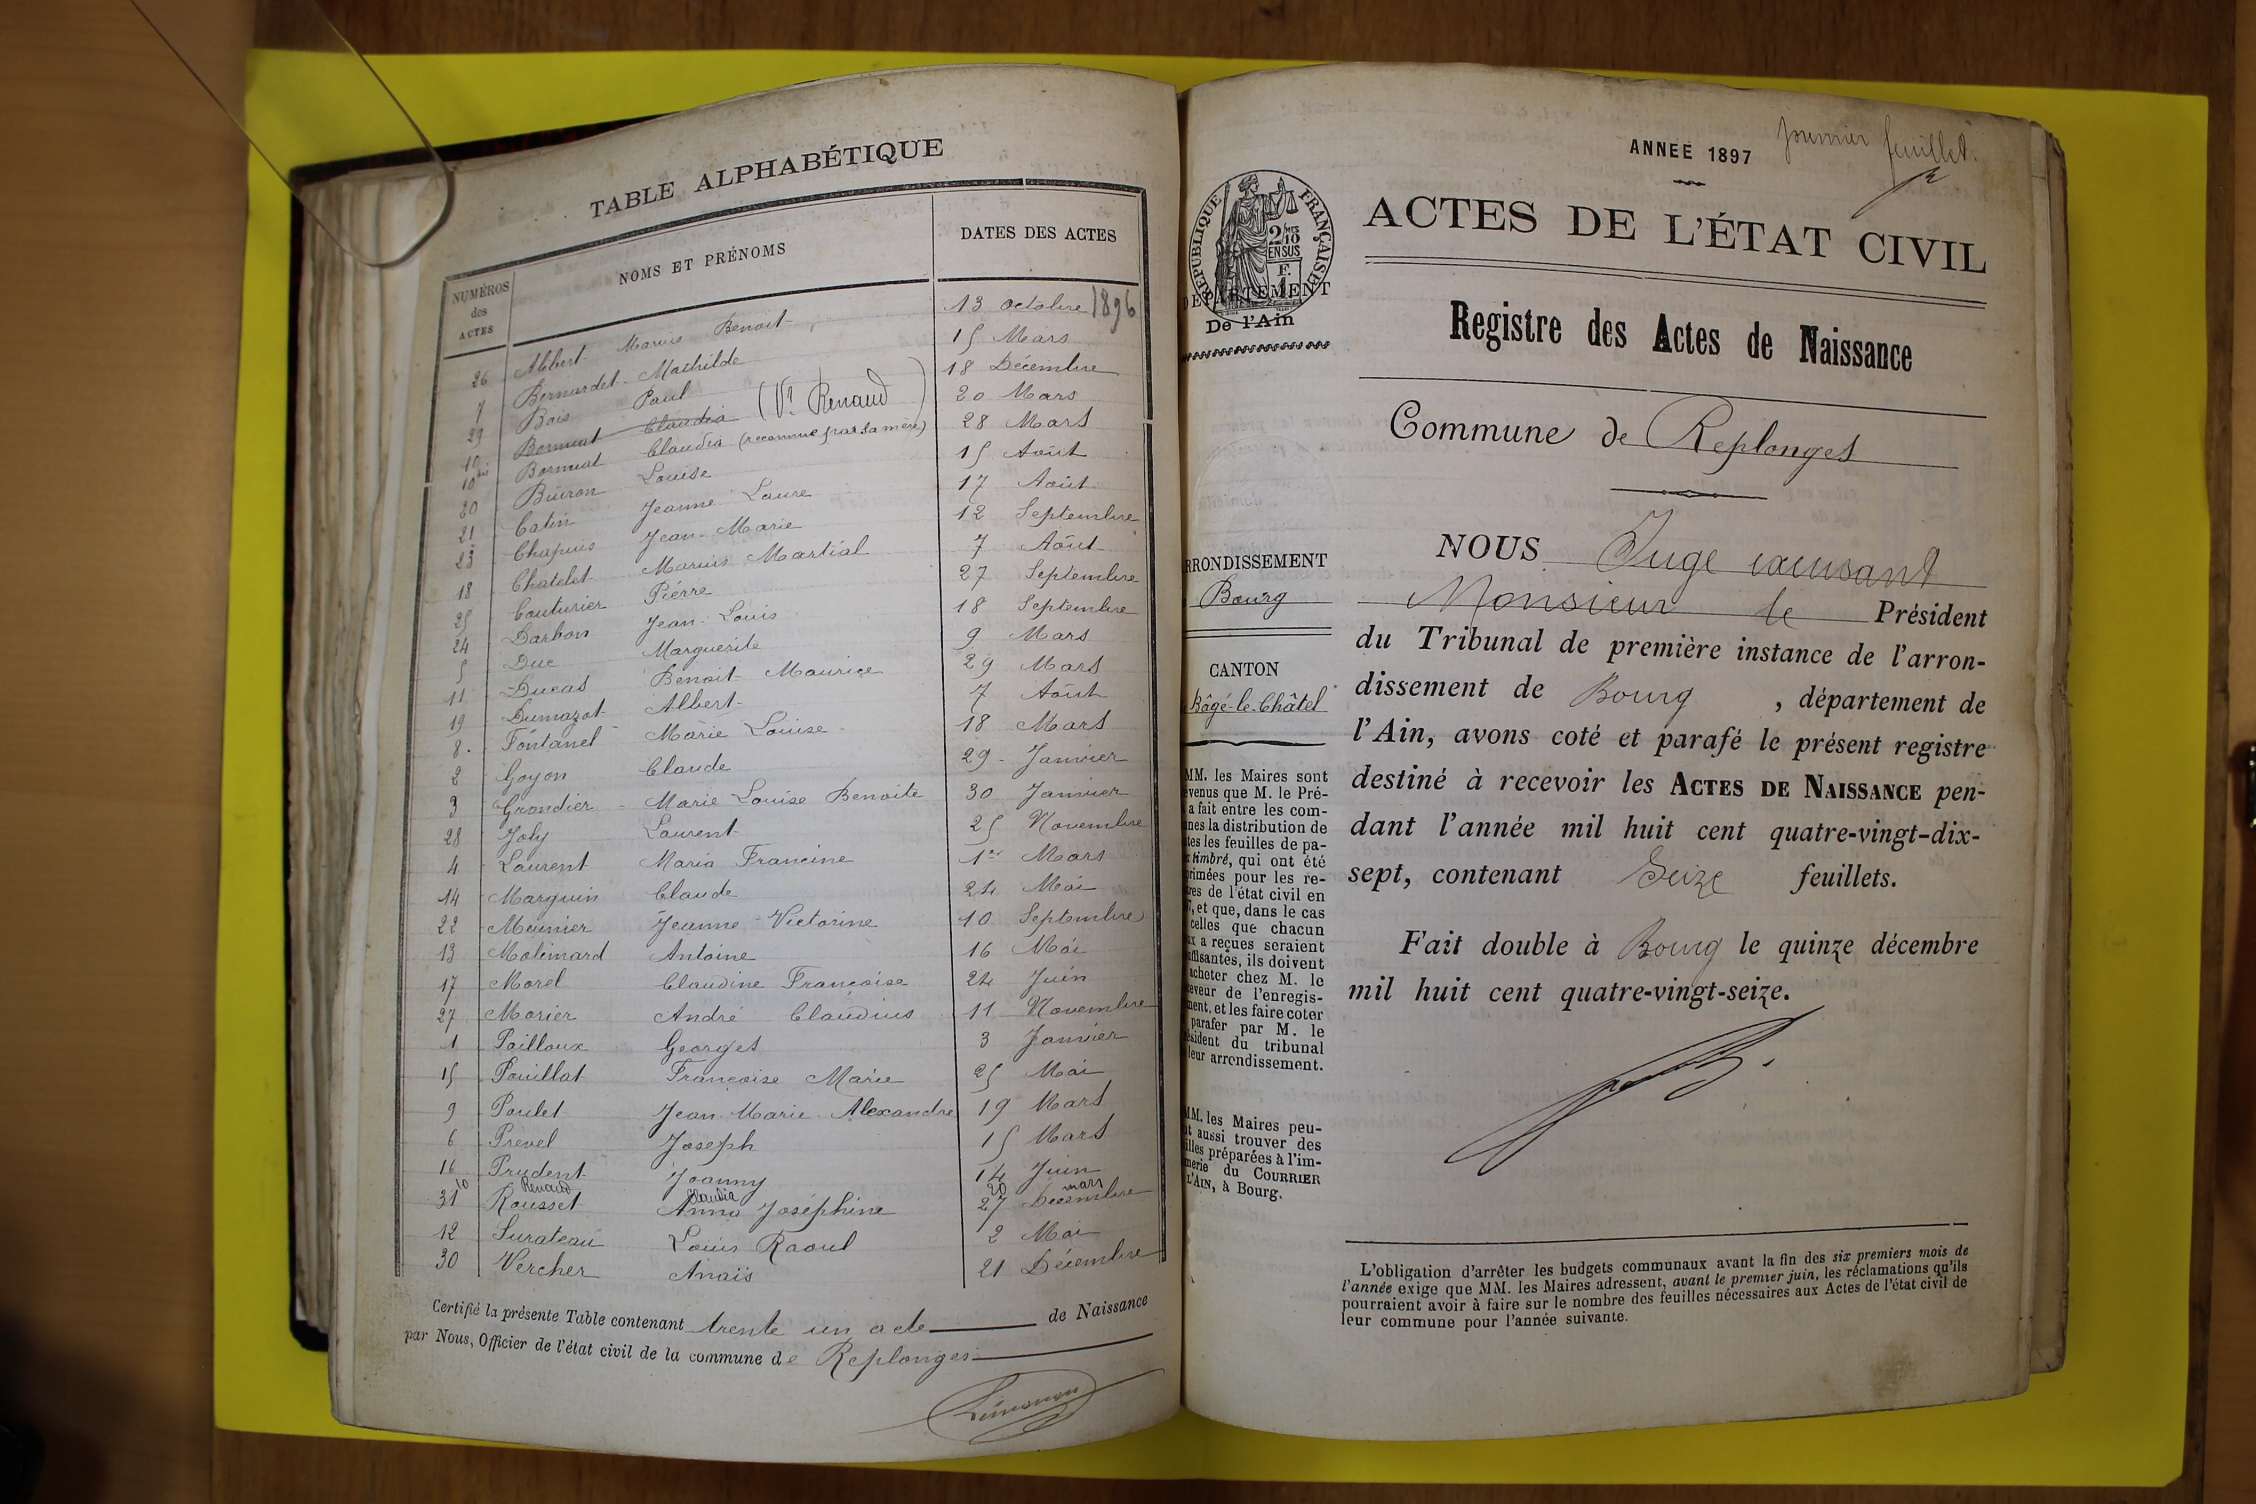 TABLE ALPHABÉTIQUE
NUMÉROS des ACTES
NOMS ET PRÉNOMS
DATES DES ACTES
26 Albert Marius Benoit 13 octobre 1896
7 Bernardet Mathilde 15 Mars
29 Bois Paul 18 Décembre
10 Bornuat Claudia (Vr Renaud) 20 Mars
10 bis Bornuat Claudia (reconnue par sa mère) 28 Mars
20 Buiron Louise 15 Août
21 Catin Jeanne Laure 17 Août
23 Chapuis Jean-Marie 12 Septembre
18 Chatelet Marius Martial 7 Août
25 Couturier Pierre 27 Septembre
24 Darbon Jean-Louis 18 Septembre
5 Duc Marguerite 9 Mars
11 Ducas Benoit Maurice 29 Mars
19 Dumazot Albert 7 Août
8 Fontanel Marie Louise 18 Mars
2 Goyon Claude 29 Janvier
3 Grondier Marie Louise Benoite 30 Janvier
28 Joly Laurent 25 Novembre
4 Laurent Maria Francine 1er Mars
14 Marguin Claude 24 Mai
22 Meunier Jeanne Victorine 10 Septembre
13 Molimard Antoine 16 Mai
17 Morel Claudine Françoise 24 Juin
27 Morier André Claudius 11 Novembre
1 Pailloux Georges 3 Janvier
15 Pouillat Françoise Marie 25 Mai
9 Poulet Jean Marie Alexandre 19 Mars
6 Prevel Joseph 15 Mars
16 Prudent Joanny 14 Juin
10 Renaud Claudia 20 mars
31 Rousset Anna Joséphine 27 Décembre
12 Surateau Louis Raoul 2 Mai
30 Vercher Anaïs 21 Décembre
Certifié la présente Table contenant trente un acte de Naissance
par Nous, Officier de l'état civil de la commune de Replonges
ANNÉE 1897
feuillet.
RÉPUBLIQUE FRANÇAISE
2/10 MES
EN SUS
F.
1
DÉPARTEMENT
De l'Ain
ACTES DE L'ÉTAT CIVIL
Registre des Actes de Naissance
Commune de Replonges
RRONDISSEMENT
Bourg
CANTON
Bâgé-le-Châtel
MM. les Maires sont
évenus que M. le Pré-
a fait entre les com-
nes la distribution de
tes les feuilles de pa-
timbré, qui ont été
rimées pour les re-
res de l'état civil en
7, et que, dans le cas
celles que chacun
ux a reçues seraient
uffisantes, ils doivent
acheter chez M. le
ceveur de l'enregis-
ment, et les faire coter
parafer par M. le
ésident du tribunal
leur arrondissement.
MM. les Maires peu-
nt aussi trouver des
illes préparées à l'im-
merie du COURRIER
L'AIN, à Bourg.
NOUS Juge excusant
Monsieur le Président
du Tribunal de première instance de l'arron-
dissement de Bourg , département de
l'Ain, avons coté et parafé le présent registre
destiné à recevoir les ACTES DE NAISSANCE pen-
dant l'année mil huit cent quatre-vingt-dix-
sept, contenant Seize feuillets.
Fait double à Bourg le quinze décembre
mil huit cent quatre-vingt-seize.
L'obligation d'arrêter les budgets communaux avant la fin des six premiers mois de
l'année exige que MM. les Maires adressent, avant le premier juin, les réclamations qu'ils
pourraient avoir à faire sur le nombre des feuilles nécessaires aux Actes de l'état civil de
leur commune pour l'année suivante.